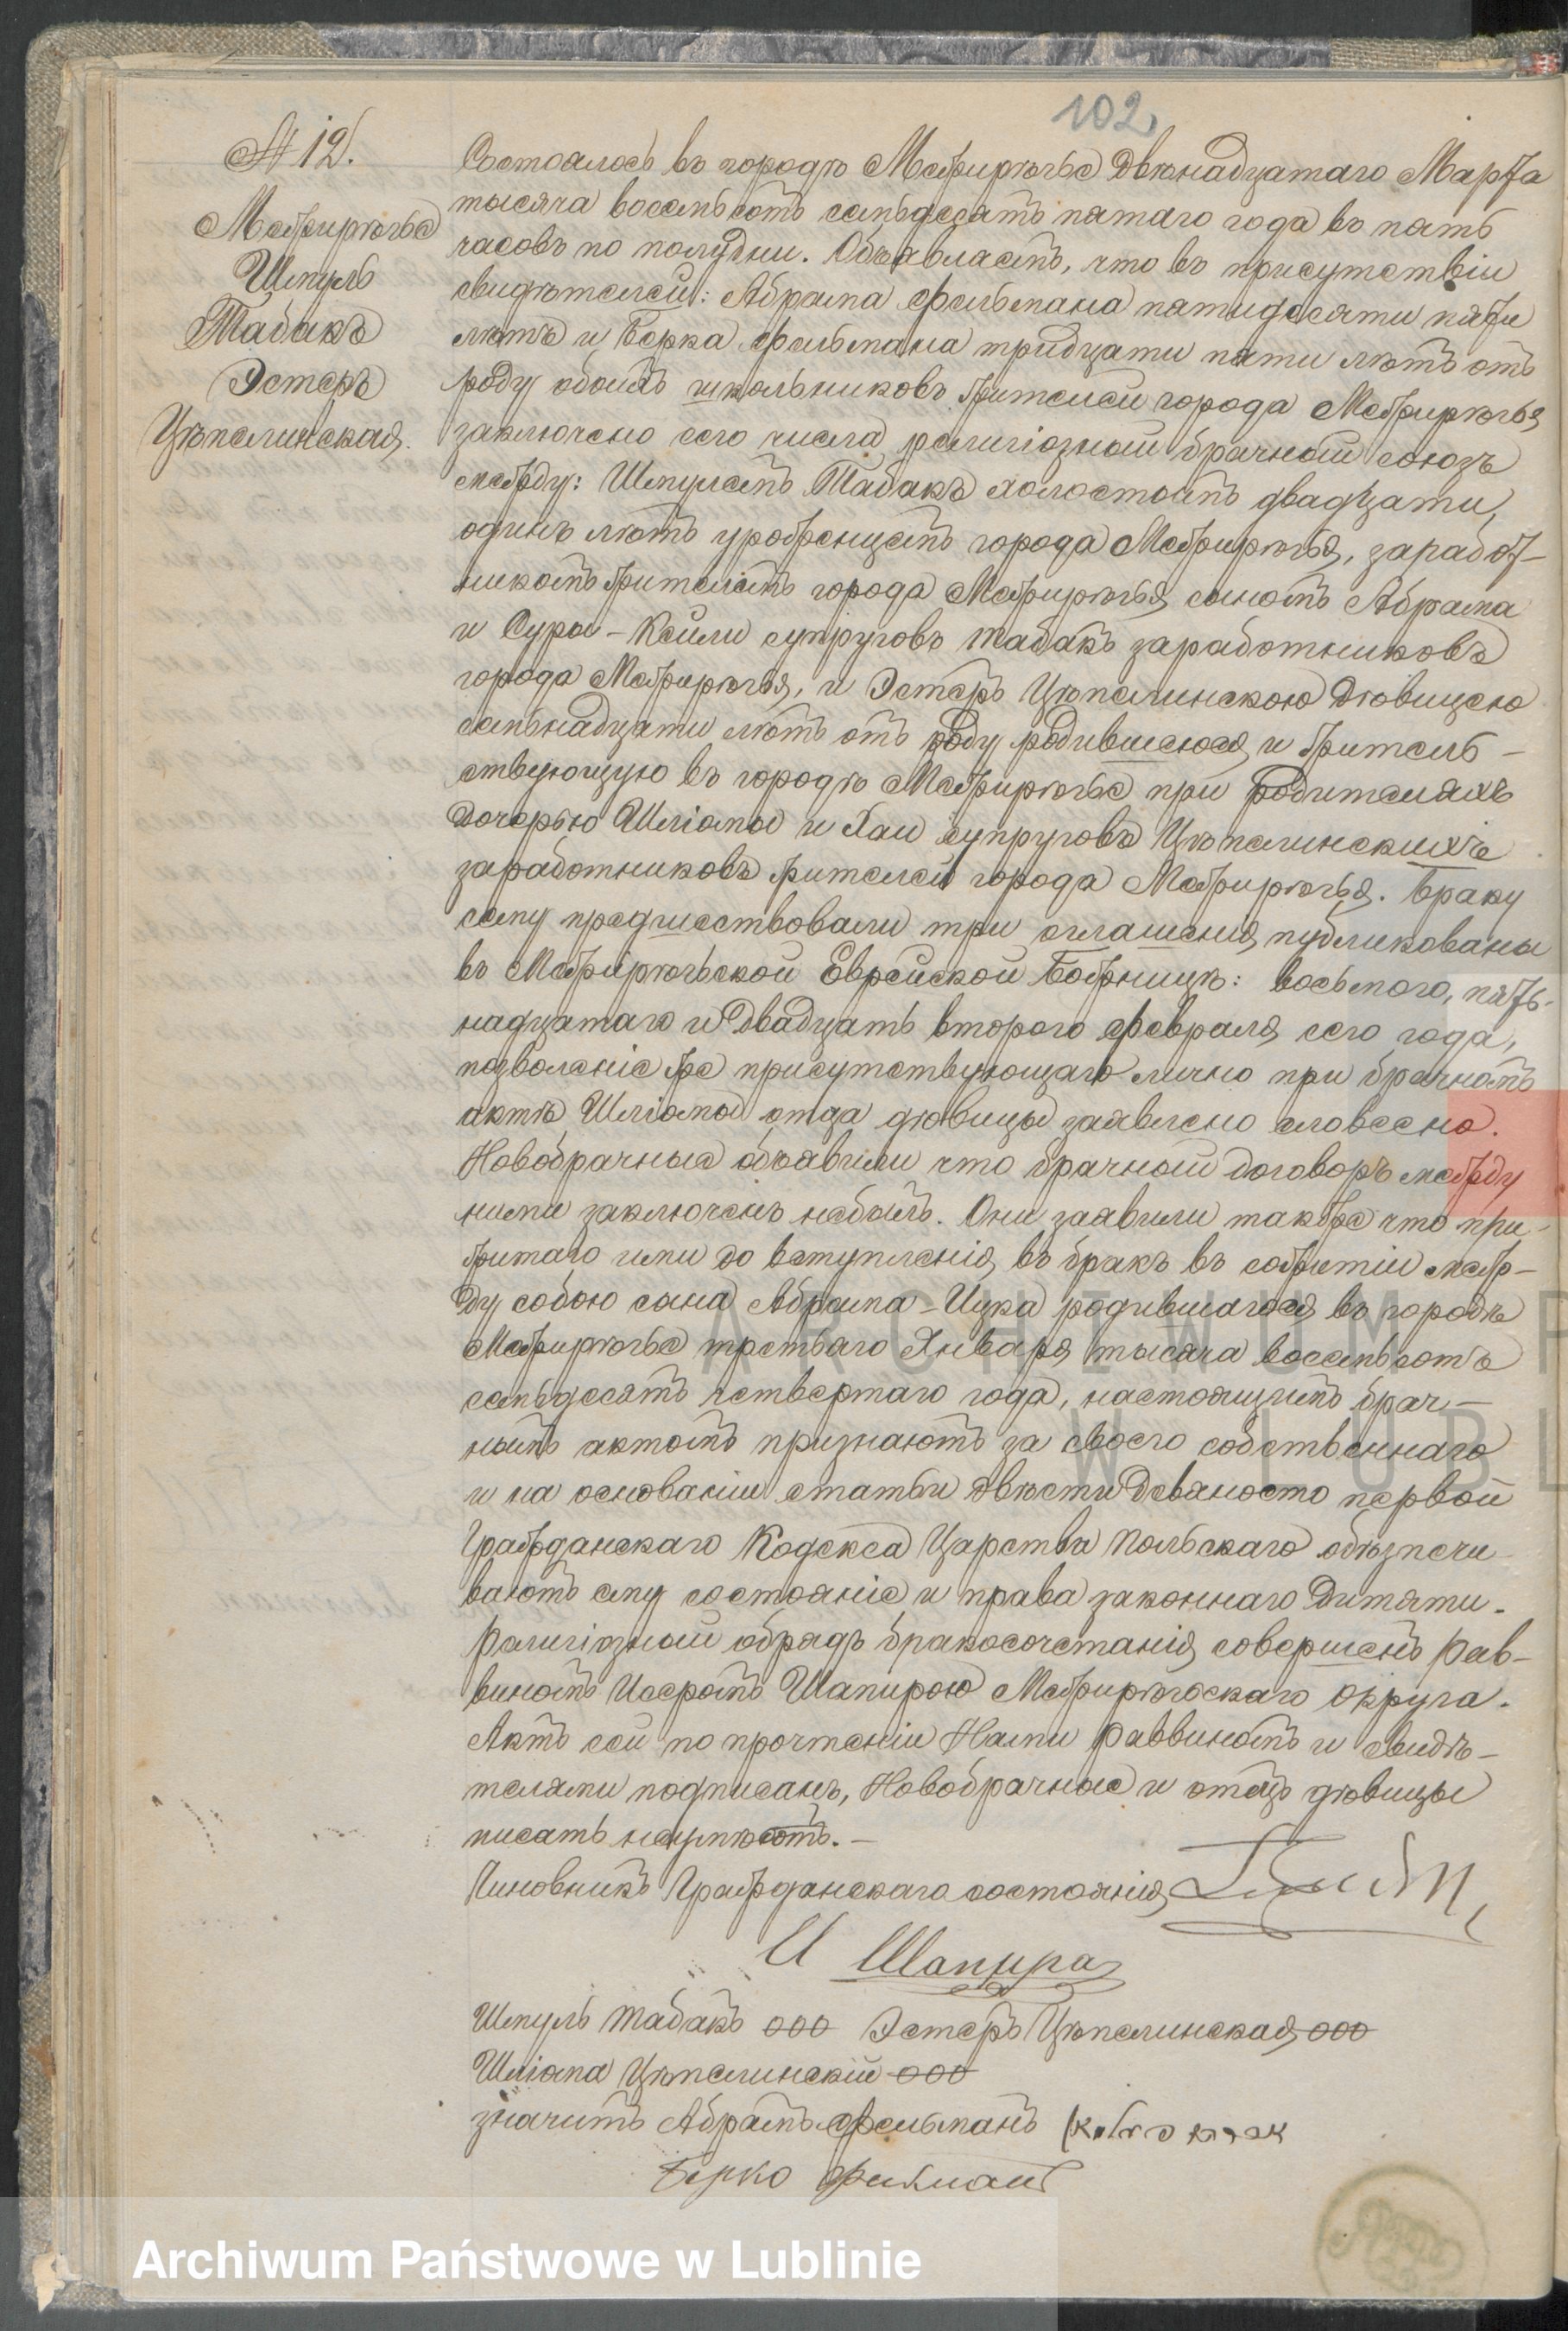 102
№ 12.
Межиречье
Шмуль
Табакъ
Эстеръ
Цѣпелинская.
Состоялось въ городѣ Межиречье Двѣнадцатаго Марта
тысяча восемьсотъ семьдесятъ пятаго года въ пять
часовъ по полудни. Объявляемъ, что въ присутствіи
свидѣтелей: Абрама Фельмана пятидесяти пяти
лѣтъ и Берка Фельмана тридцати пяти лѣтъ отъ
роду обоихъ школьниковъ жителей города Межирѣчья
заключено сего числа религіозный брачный союзъ
между: Шмулемъ Табакъ холостымъ двадцати
одинъ лѣтъ урожденцемъ города Межирѣчья, заработ-
никомъ жителемъ города Межирѣчья сыномъ Абрама
и Суры-Кейли супруговъ Табакъ заработниковъ
города Межирѣчья, и Эстеръ Цѣпелинскою Дѣвицею
семьнадцати лѣтъ отъ роду родившеюся и житель-
ствующую въ городѣ Межирѣчье при родителяхъ
Дочерью Шліомы и Хаи супруговъ Цѣпелинскихъ
заработниковъ жителей города Межирѣчья. Браку
сему предшествовали три оглашенія, публикованы
въ Межирѣчьской Еврейской Божницѣ: восьмого, пять-
надцатаго и Двадцать второго Февраля сего года,
позволеніе же присутствующаго лично при брачномъ
актѣ Шліомы отца дѣвицы заявлено словесно.
Новобрачные объявили что брачный договоръ между
ними заключенъ небылъ. Они заявили также что при-
житаго ими до вступленія въ бракъ въ сожитіи меж-
ду собою сына Абрама-Ицка родившагося въ городѣ
Межирѣчье третьаго Января тысяча восемьсотъ
семьдесятъ четвертаго года, настоящимъ брач-
нымъ актомъ признаютъ за своего собственнаго
и на основаніи статьи двѣсти Девяносто первой
Гражданскаго Кодекса Царства Польскаго обѣзпечи-
ваютъ ему состояніе и права законнаго Дитяти.
Религіозный обрядъ бракосочетанія совершенъ Рав-
виномъ Исеромъ Шапирою Межирѣчскаго Округа.
Актъ сей по прочтеніи Нами Раввиномъ и свидѣ-
телями подписанъ, Новобрачные и отецъ дѣвицы
писать неумѣютъ.-
Чиновникъ Гражданскаго состоянія
И Шапира
Шмуль Табакъ ооо Эстеръ Цѣпелинская ооо
Шліома Цѣпелинскій ооо
значитъ Абрамъ Фельманъ
Берко Фельманъ
ARCHIWUM P
W LUBL
Archiwum Państwowe w Lublinie